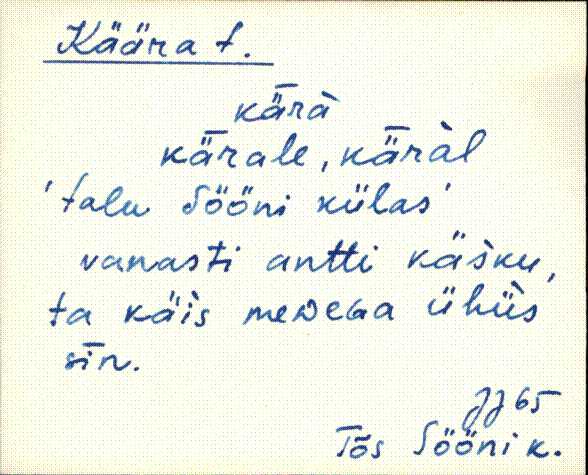 Käära t.
kǟrà
kǟrale, kǟràl
'talu Sööni külas'
vanasti antti käsku,
ta käis meiega ühüs
sīn.
JJ 65
Tõs Sööni k.